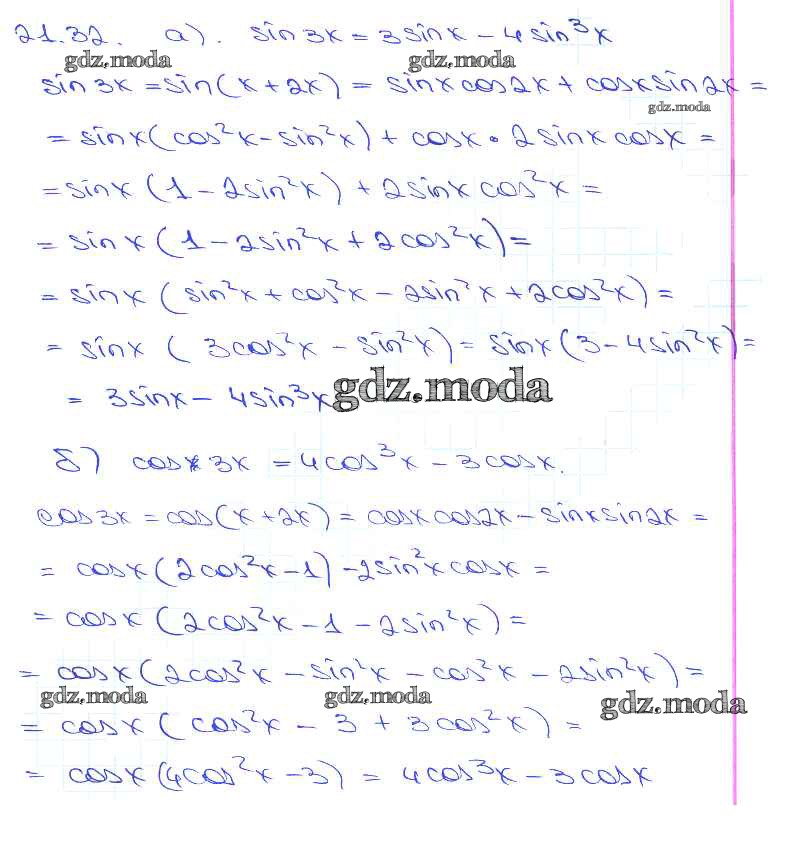 21.32. а). sin 3x = 3sinx - 4sin³x
gdz.moda gdz.moda
sin 3x = sin(x + 2x) = sinx cos2x + cosx sin2x =
gdz.moda
= sinx(cos²x - sin²x) + cosx · 2sinx cosx =
= sinx (1 - 2sin²x) + 2sinx cos²x =
= sinx (1 - 2sin²x + 2cos²x) =
= sinx (sin²x + cos²x - 2sin²x + 2cos²x) =
= sinx ( 3cos²x - sin²x) = sinx (3 - 4sin²x) =
= 3sinx - 4sin³x gdz.moda
б) cos 3x = 4cos³x - 3cosx.
cos3x = cos(x + 2x) = cosx cos2x - sinx sin2x =
= cosx (2cos²x - 1) - 2sin²x cosx =
= cosx (2cos²x - 1 - 2sin²x) =
= cosx (2cos²x - sin²x - cos²x - 2sin²x) =
gdz.moda gdz.moda gdz.moda
= cosx ( cos²x - 3 + 3cos²x ) =
= cosx (4cos²x - 3) = 4cos³x - 3cosx